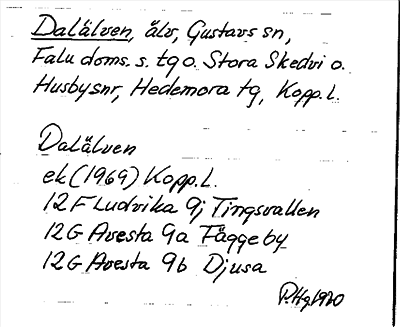 Dalälven, älv, Gustavs sn,
Falu doms. s. tg o. Stora Skedvi o.
Husbysnr, Hedemora tg, Kopp. l.
Dalälven
ek (1969) Kopp. l.
12F Ludvika 9j Tingsvallen
12G Avesta 9a Fäggeby
12G Avesta 9b Djusa